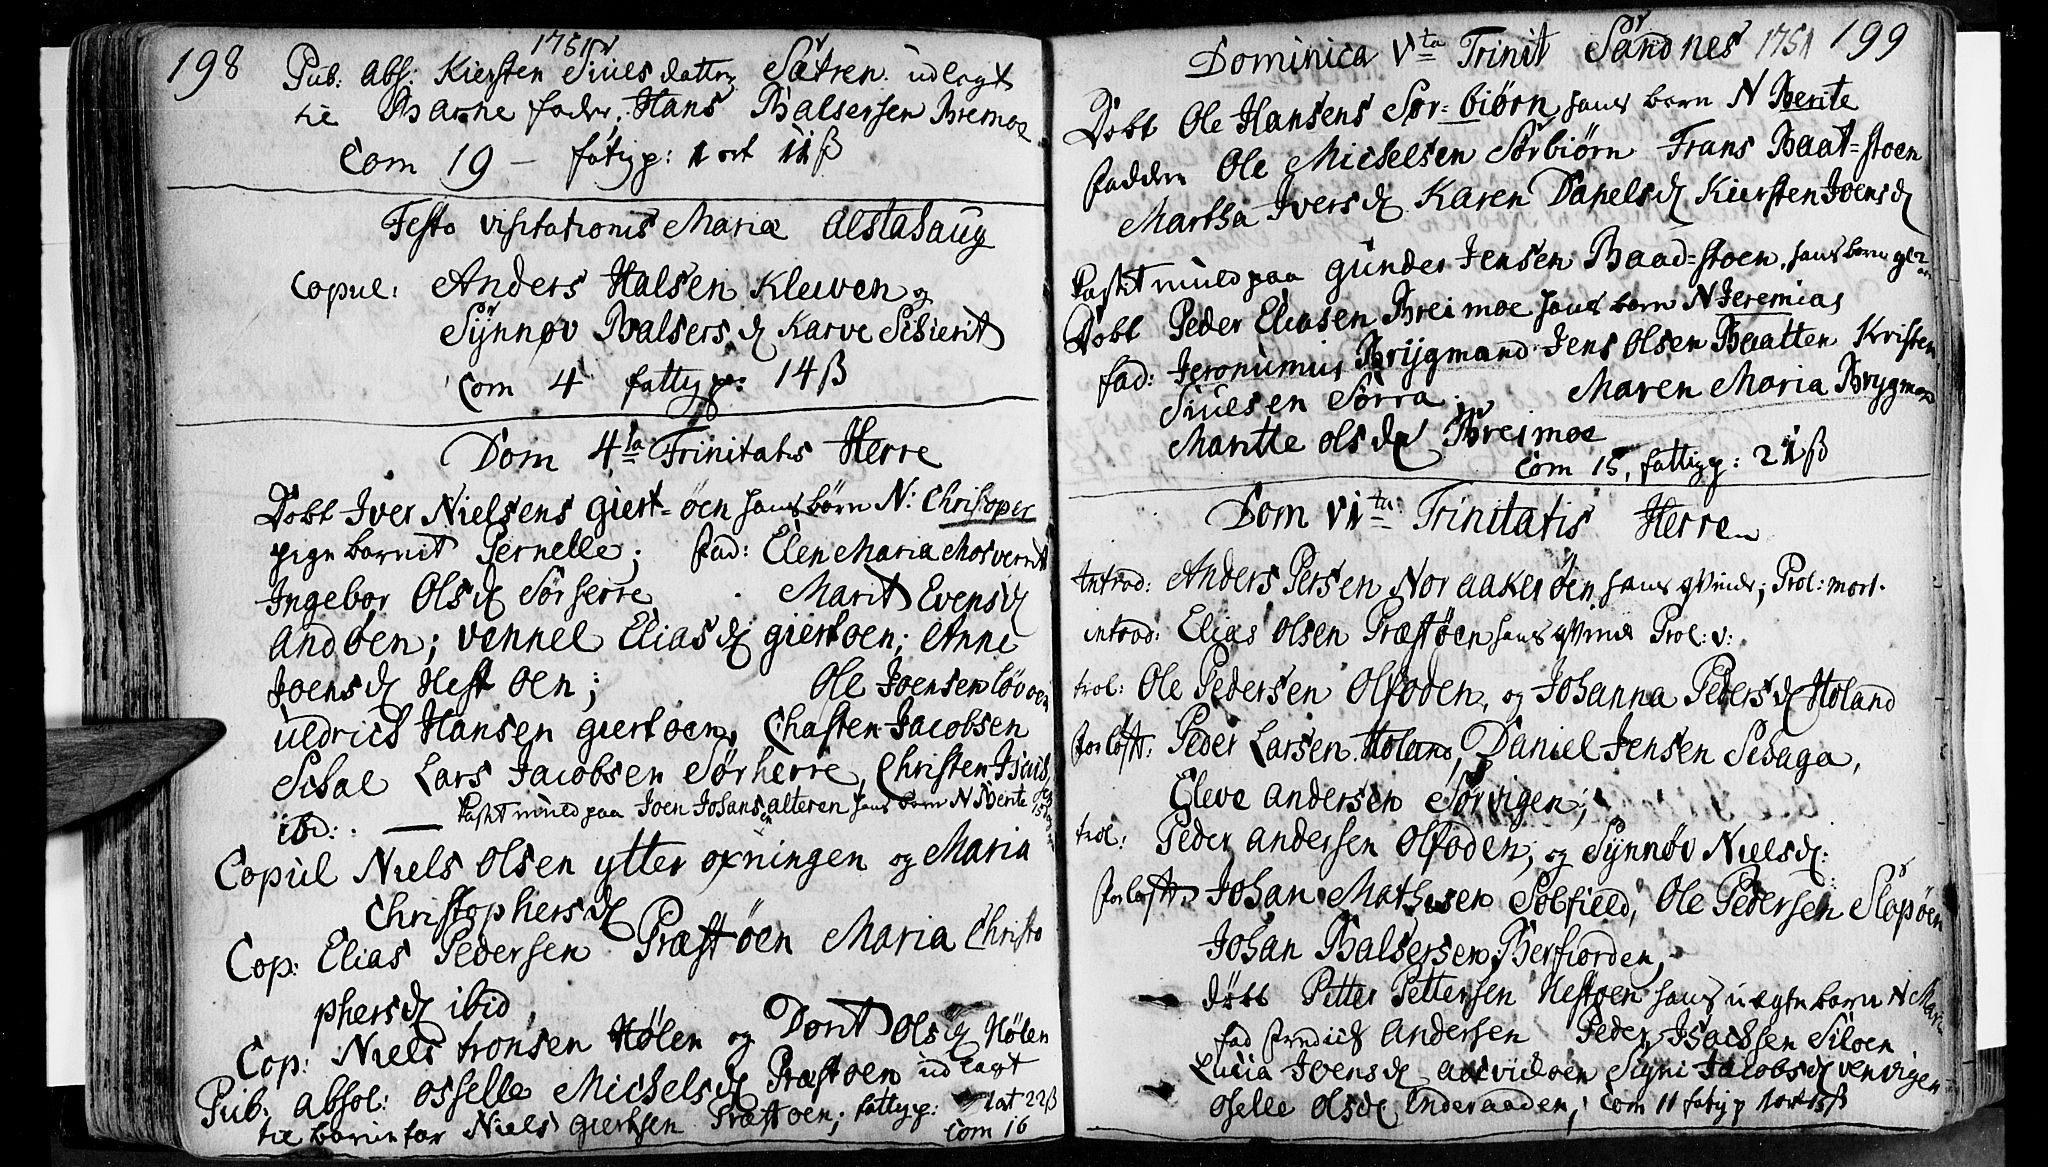 198
1751
Pub: abs: Kiersten Siuls datter Sætren udlagt
til Barne fader Hans Balsersen Breimoe
Com 19 – fatigp: 1 ort 11 ß
Festo visitationis Mariæ Alstahaug
Copul: Anders Halsen Klewen og
Synnøv Balsers d Karve Schierit
Com 4 fattigp: 14 ß
Dom 4ta Trinitatis Herre
Døbt Iver Nielsens giert-øen hans børn N: Christoper
pigebarnit Pernelle; fad: Elen Maria Mosverrit
Ingebor Olsd Sørherre Marit Evensd
andøen; vennel Eliasd giertøen; Anne
Joensd Hestøen; Ole Joensen løvøen
uldrich Hansen giertøen, Chasten Jacobsen
Schal Lars Jacobsen Sørherre, Christen
ibd: – Kastet muld paa Joen Johansen alteren hans barn N Berite
Copul Niels Olsen ytter øxningen og Maria
Christophersd
Cop: Elias Pedersen Præstøen Maria Christo
phersd ibid
Cop: Niels tronsen Hølen og Dorit Olsd Hølen
Pub: absol: Osselle Michelsd Præstøen udlagt
til barnefar Niels giertsen Præstøen; fattigp: 1 ort 22 ß
Com 16
Dominica Vta Trinit Sandnes 1751 199
Døbt Ole Hansens Sør-biørn hans barn N Berite
fadder Ole Michelsen Sørbiørn Frans Baat-støen
Martha Iversd Karen Danelsd Kiersten Joensd
Kastet muld paa gunder Jensen Baad-støen hans barn
Døbt Peder Eliasen Breimoe hans barn N Jeremias
fad: Jeronimus Brygmand Jens Olsen Baatten Kristen
Siulsen Sørra. Maren Maria Brygmand
Maritte olsd Breimoe
Com 15, fattigp: 21 ß
Dom VIta Trinitatis Herre
Introd: Anders Persen Nor aakerøen hans qvinde, Prol: mort.
introd: Elias Olsen Præstøen hans qvinde Prol: v:
trol: Ole Pedersen Olfoden, og Johanna Pedersd Høland
forløft: Peder Larsen Høland, Daniel Jensen
Eleve andersen Sørvigen;
trol: Peder andersen Olfoden; og Synnøv Nielsd:
forløft: Johan Mathisen Solfield, Ole Pedersen Slapøen
Johan Balsersen Berfiorden,
døbt Petter Pettersen Hestøen hans uægte barn N Maria
fad Andersen Peder Isachsen Siloen
Lucia Joensd Signi Jacobsd venvigen
Oselle Olsd Inderaaden; Com 11 fatigp 1 ort 15 ß